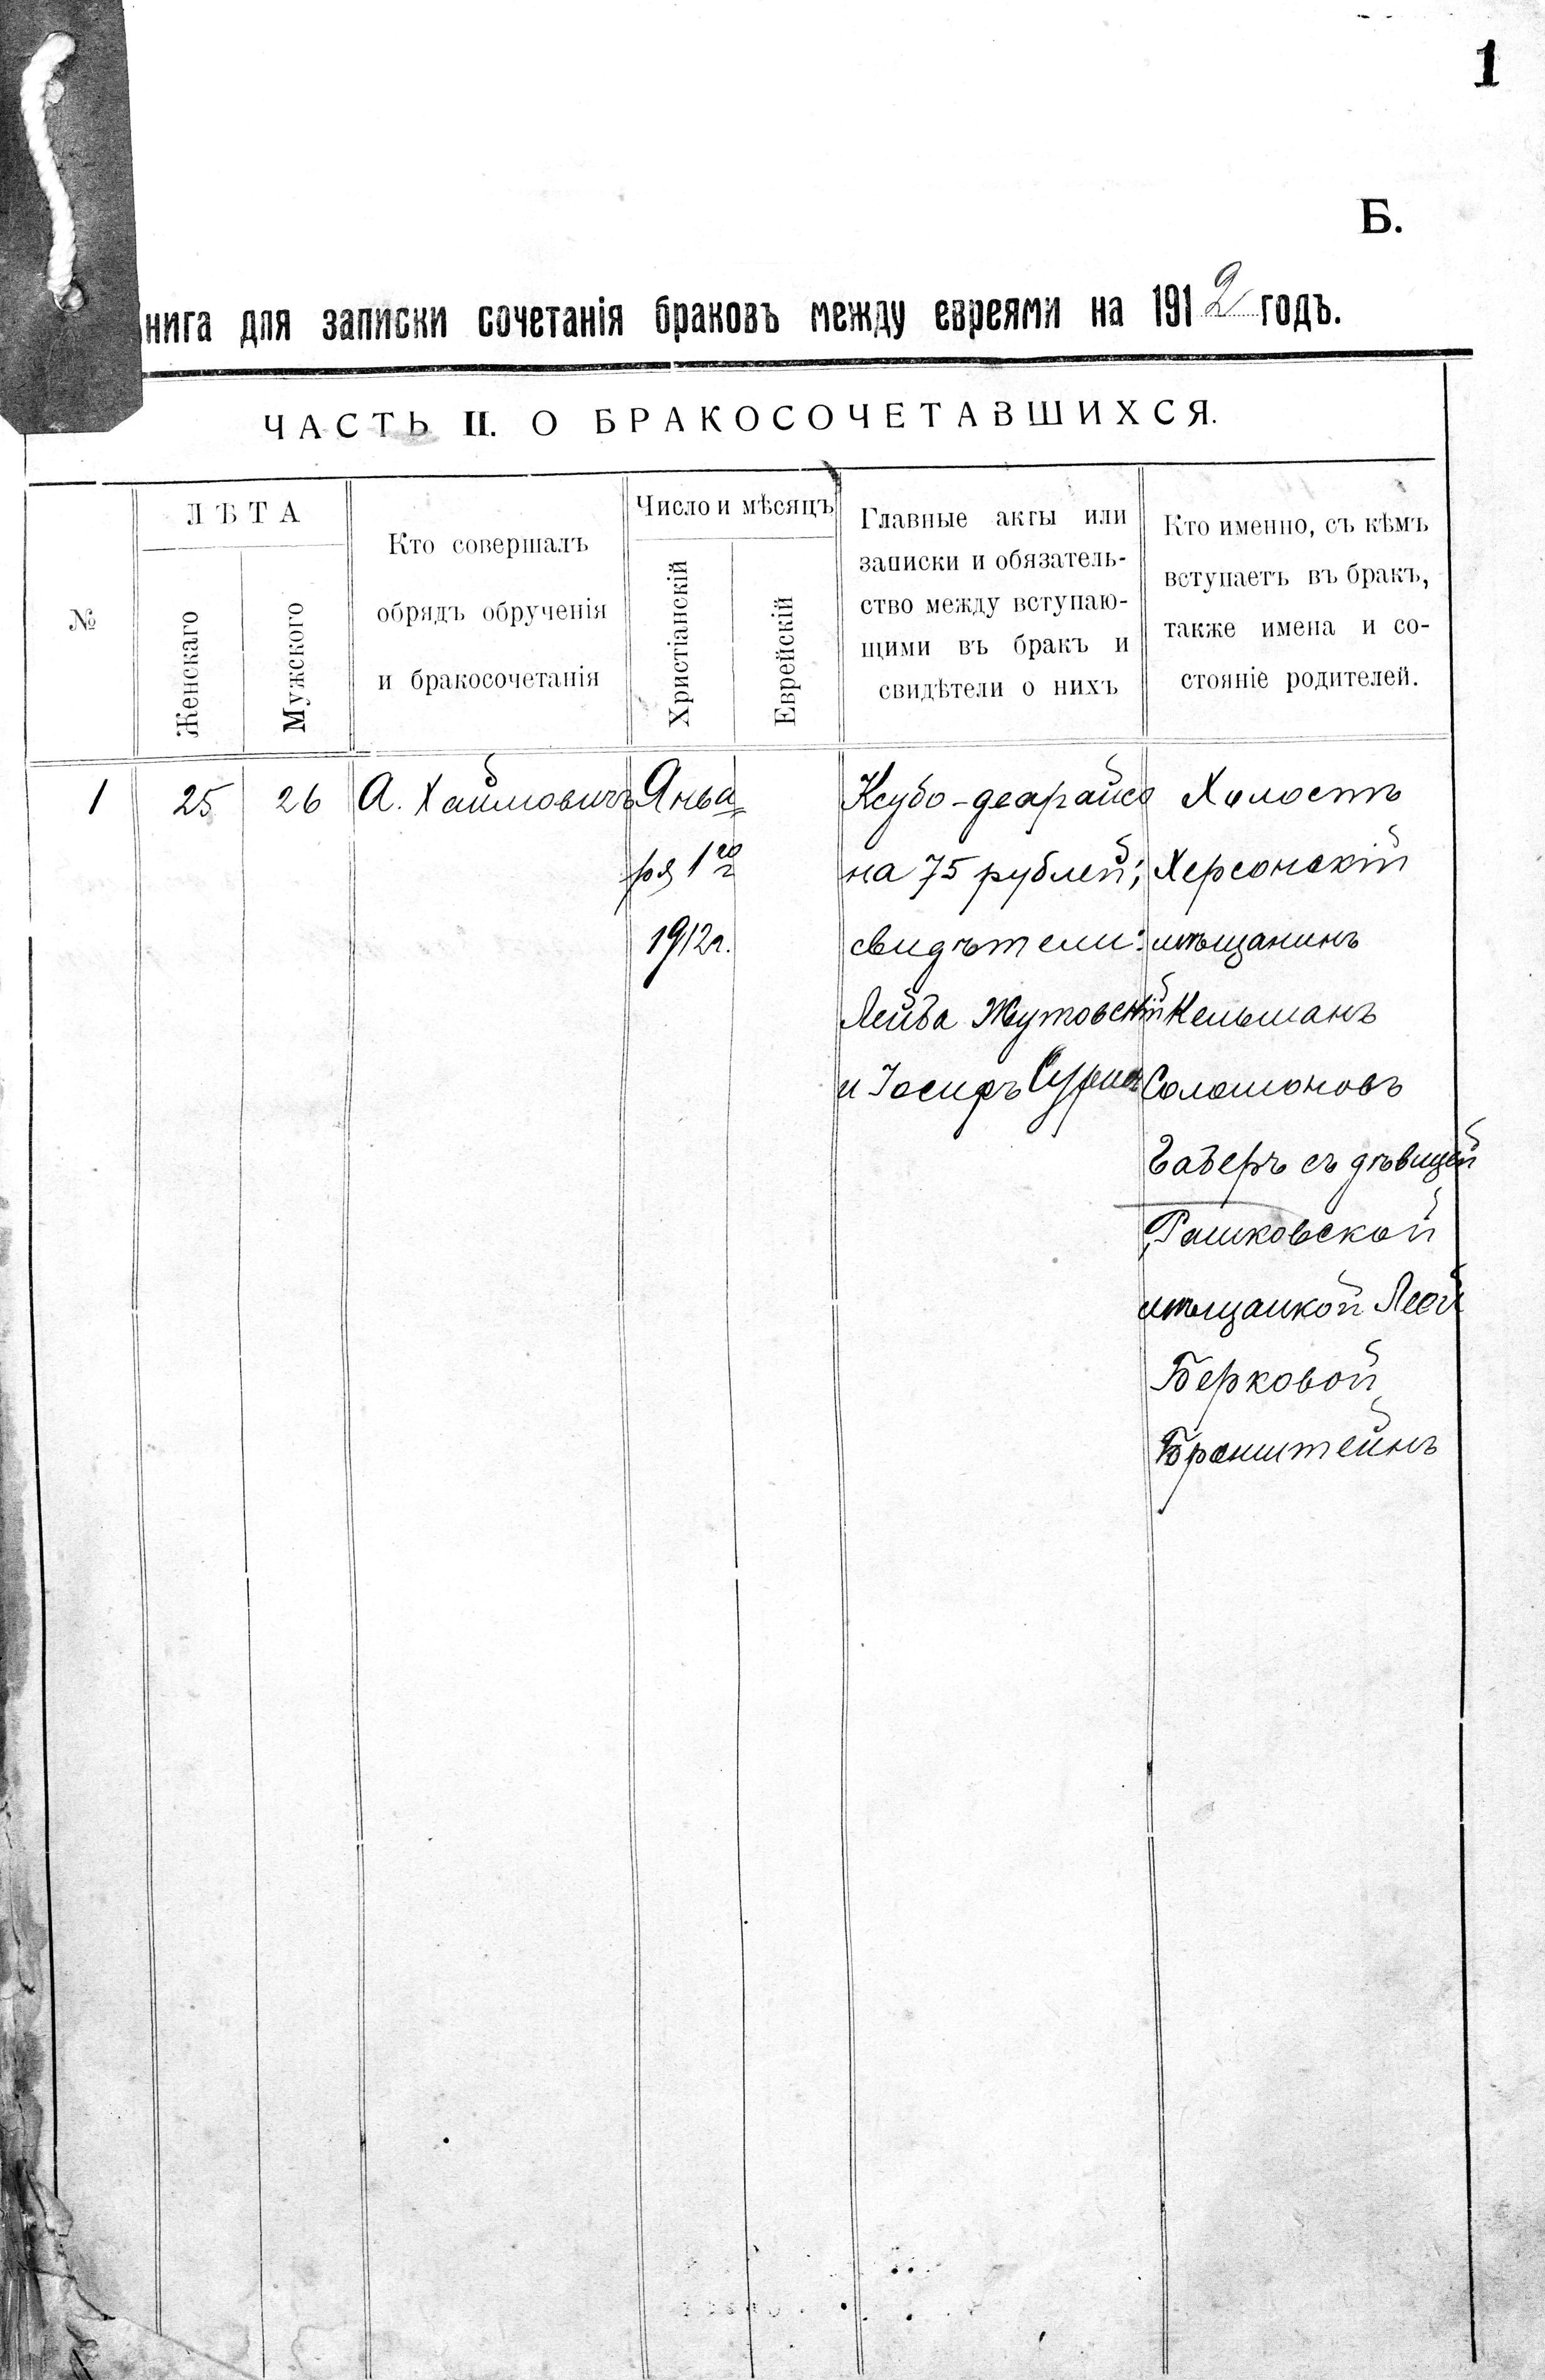 1
Б.
нига для записки сочетанія браковъ между евреями на 1912 годъ.
ЧАСТЬ II. О БРАКОСОЧЕТАВШИХСЯ.
№
ЛѢТА
Женскаго
Мужского
Кто совершалъ
обрядъ обрученія
и бракосочетанія
Число и мѣсяцъ
Христіанскій
Еврейскій
Главные акты или
записки и обязатель-
ство между вступаю-
щими въ бракъ и
свидѣтели о нихъ
Кто именно, съ кѣмъ
вступаетъ въ бракъ,
также имена и со-
стояніе родителей.
1
25
26
А. Хаймовичъ
Янва=
ря 1го
1912г.
Ксубо-деарайсо
на 75 рублей;
свидѣтели:
Лейба Жутовскій
и Іосифъ
Холостъ
Херсонскій
мѣщанинъ
Кельманъ
Соломоновъ
съ дѣвицей
Рашковской
мѣщанкой Леей
Берковой
Бронштейнъ